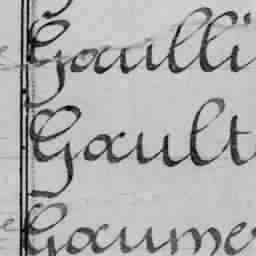 Gaulli
Gault
Gaume